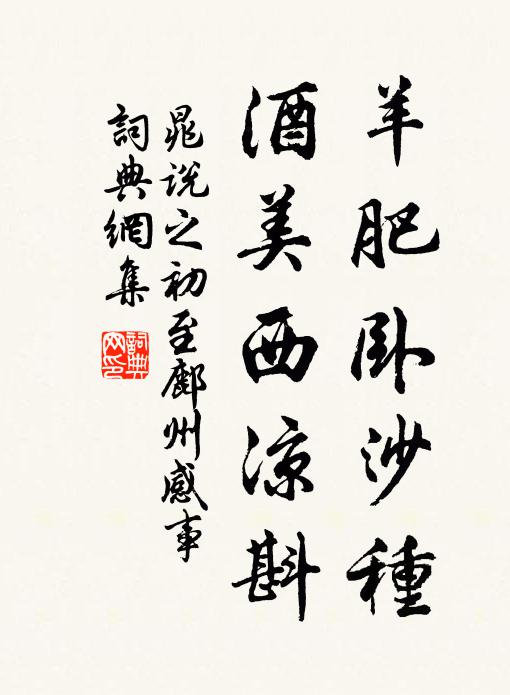 羊肥卧沙種
酒美西涼斟
晁说之初至鄜州感事
詞典網集
詞典網印